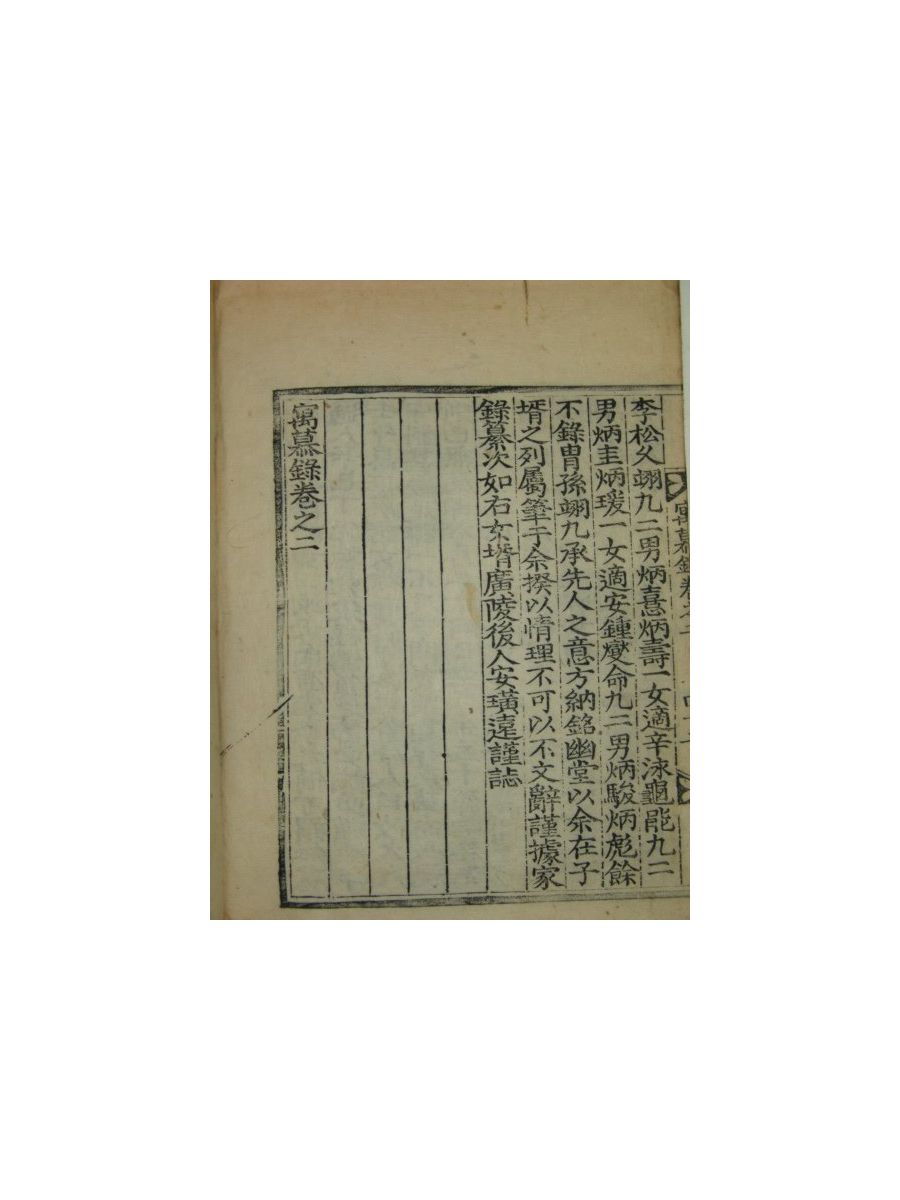 寓慕錄卷之二
李松父翊九二男炳憙炳壽一女適辛泳龜能九二
男炳圭炳瑗一女適安鍾燮命九二男炳駿炳彪餘
不錄胄孫翊九承先人之意方納銘幽堂以余在子
壻之列屬筆于余揆以情理不可以不文辭謹據家
錄纂次如右女壻廣陵後人安瓚遠謹誌
寓慕錄卷之二